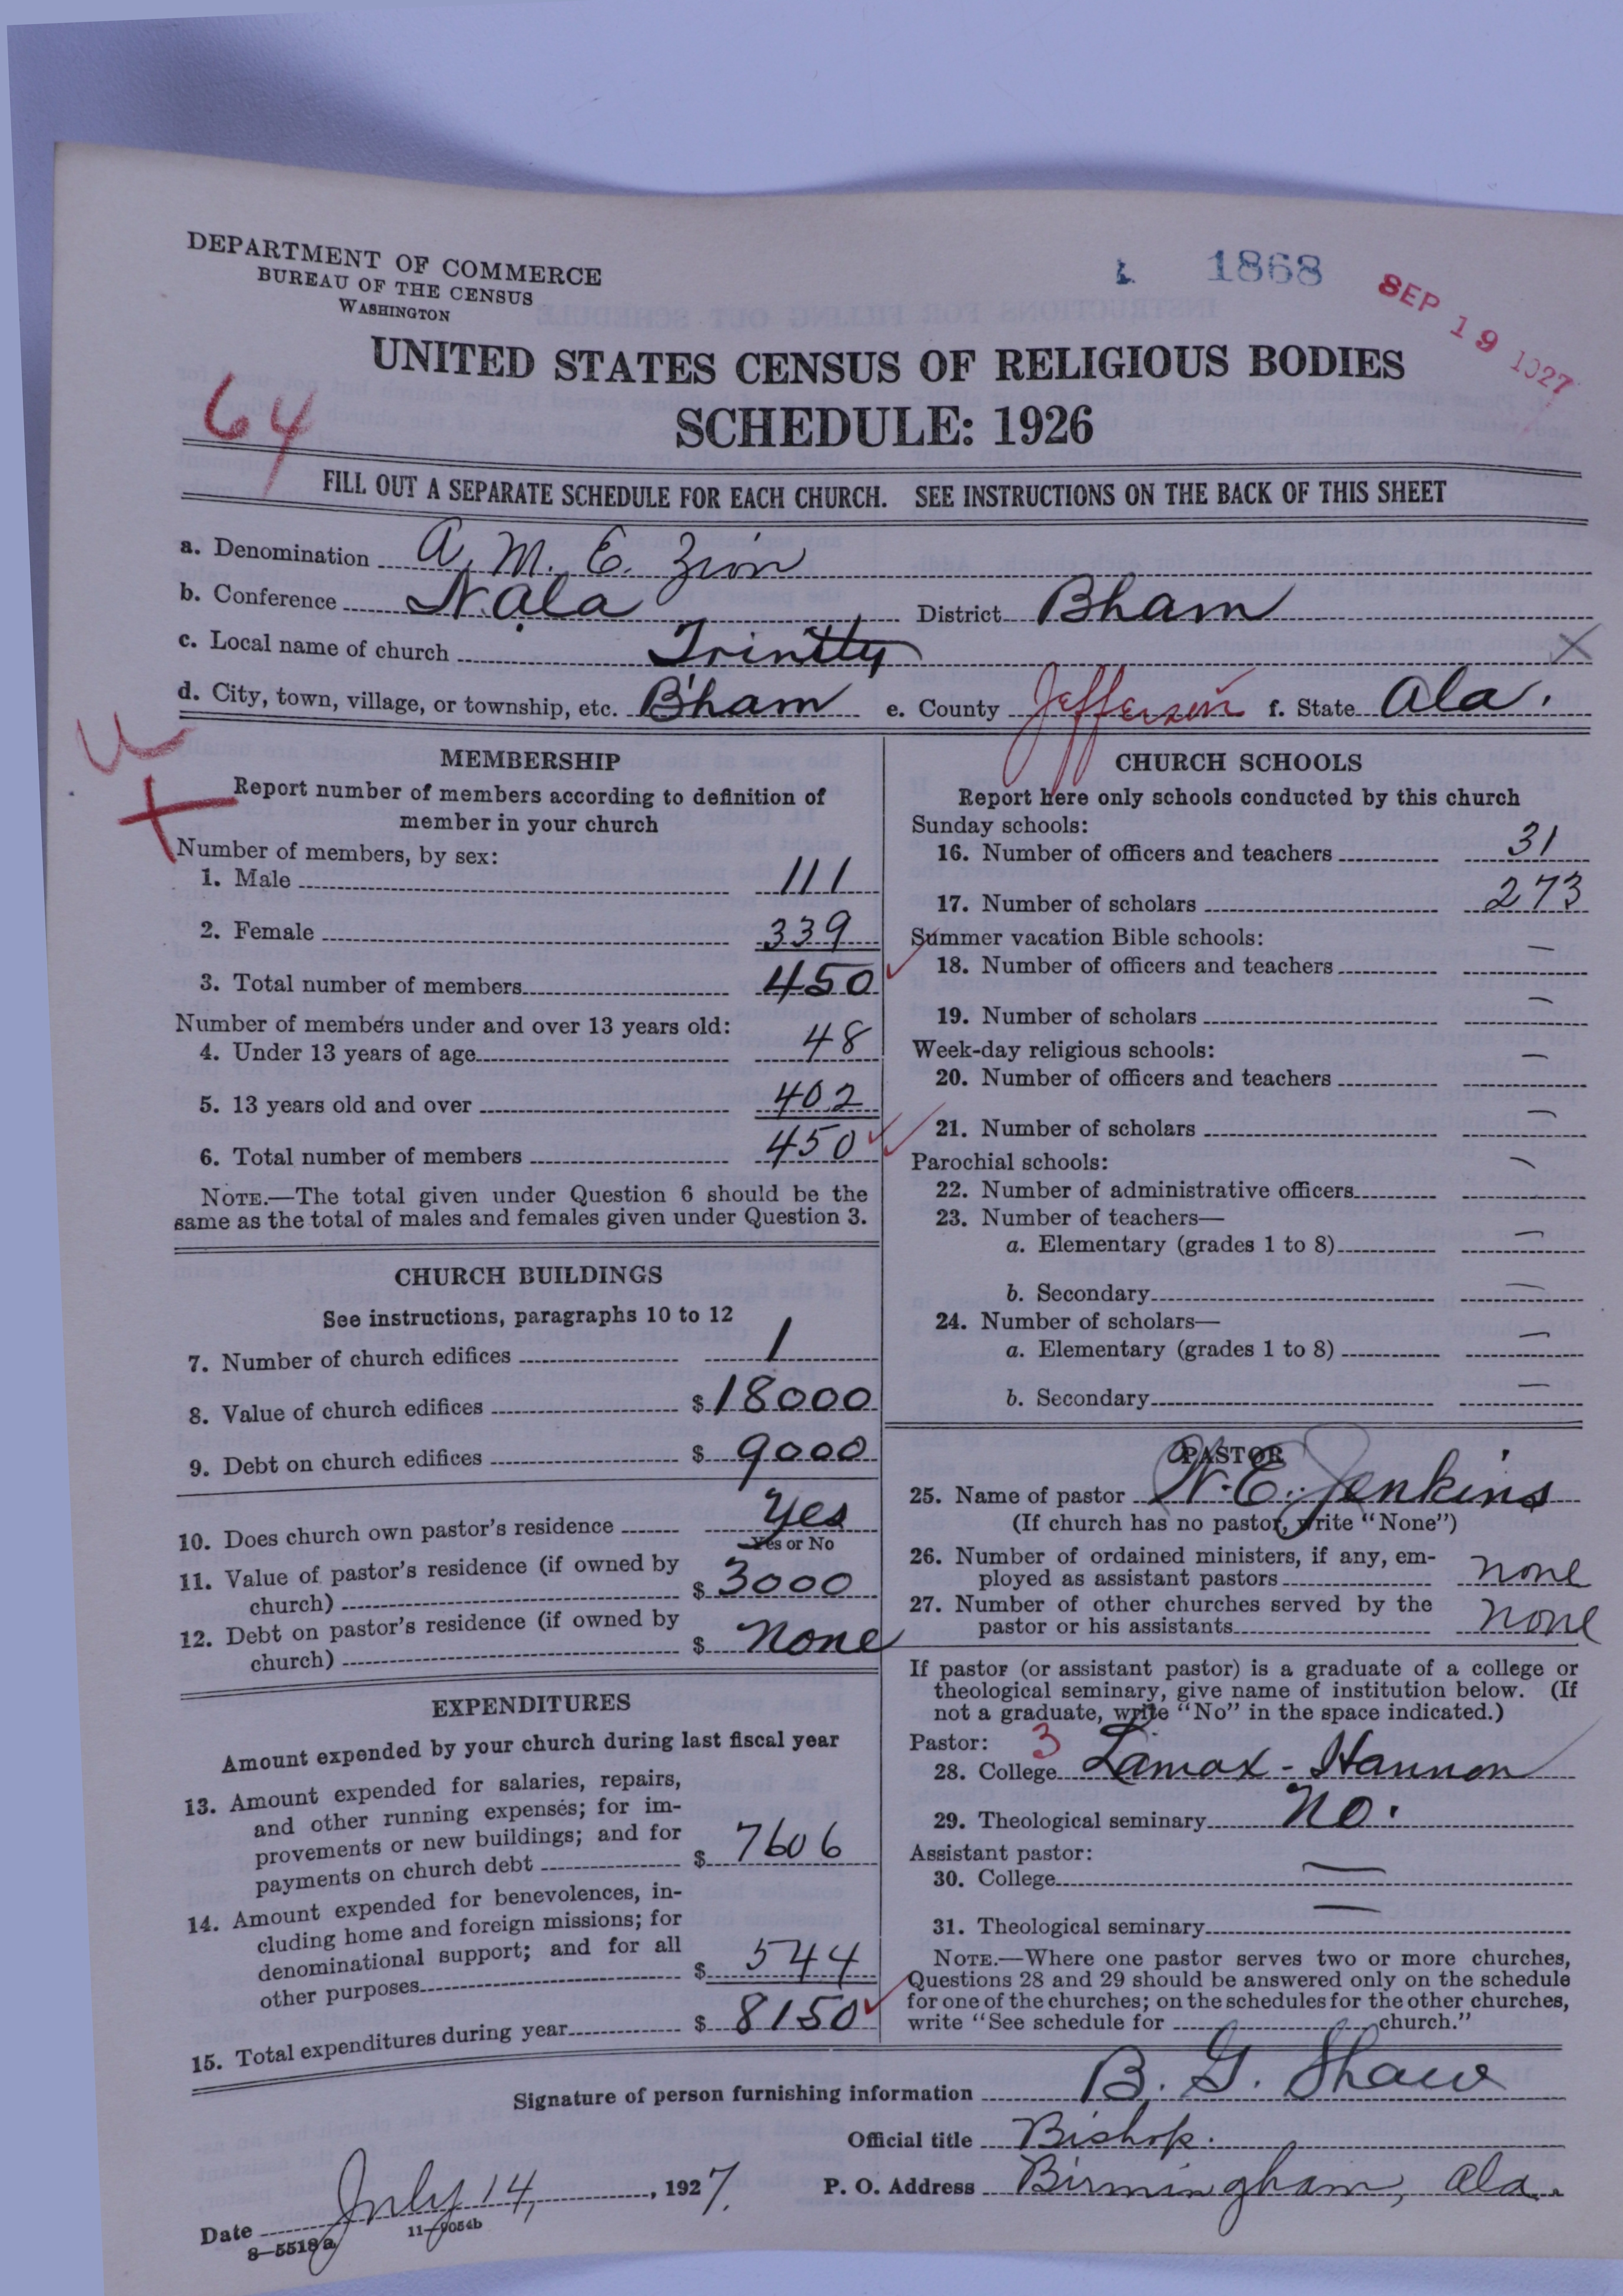 DEPARTMENT OF COMMERCE
BUREAU OF THE CENSUS
WASHINGTON
1868
SEP 19 1927
UNITED STATES CENSUS OF RELIGIOUS BODIES
SCHEDULE: 1926
64
FILL OUT A SEPARATE SCHEDULE FOR EACH CHURCH. SEE INSTRUCTIONS ON THE BACK OF THIS SHEET
a. Denomination A. M. E. Zion
b. Conference N. Ala District Bham
c. Local name of church Trinity X
d. City, town, village, or township, etc. B'ham e. County Jefferson f. State Ala.
MEMBERSHIP
Report number of members according to definition of
member in your church
Number of members, by sex:
1. Male 111
2. Female 339
3. Total number of members 450
Number of members under and over 13 years old:
4. Under 13 years of age 48
5. 13 years old and over 402
6. Total number of members 450
NOTE.—The total given under Question 6 should be the
same as the total of males and females given under Question 3.
CHURCH BUILDINGS
See instructions, paragraphs 10 to 12
7. Number of church edifices 1
8. Value of church edifices $ 18000
9. Debt on church edifices $ 9000
10. Does church own pastor's residence Yes
Yes or No
11. Value of pastor's residence (if owned by
church) $ 3000
12. Debt on pastor's residence (if owned by
church) $ none
EXPENDITURES
Amount expended by your church during last fiscal year
13. Amount expended for salaries, repairs,
and other running expenses; for im-
provements or new buildings; and for
payments on church debt $ 7606
14. Amount expended for benevolences, in-
cluding home and foreign missions; for
denominational support; and for all
other purposes $ 544
15. Total expenditures during year $ 8150
CHURCH SCHOOLS
Report here only schools conducted by this church
Sunday schools:
16. Number of officers and teachers 31
17. Number of scholars 273
Summer vacation Bible schools:
18. Number of officers and teachers —
19. Number of scholars —
Week-day religious schools:
20. Number of officers and teachers —
21. Number of scholars —
Parochial schools:
22. Number of administrative officers —
23. Number of teachers—
a. Elementary (grades 1 to 8) —
b. Secondary —
24. Number of scholars—
a. Elementary (grades 1 to 8) —
b. Secondary —
PASTOR
25. Name of pastor W. E. Jenkins
(If church has no pastor, write "None")
26. Number of ordained ministers, if any, em-
ployed as assistant pastors none
27. Number of other churches served by the
pastor or his assistants none
If pastor (or assistant pastor) is a graduate of a college or
theological seminary, give name of institution below. (If
not a graduate, write "No" in the space indicated.)
Pastor: 3
28. College Lamox - Hannon
29. Theological seminary No.
Assistant pastor:
30. College —
31. Theological seminary —
NOTE.—Where one pastor serves two or more churches,
Questions 28 and 29 should be answered only on the schedule
for one of the churches; on the schedules for the other churches,
write "See schedule for church."
Signature of person furnishing information B. G. Shaw
Official title Bishop.
Date July 14, 1927. P. O. Address Birmingham, Ala.
8—5518a 11—9054b